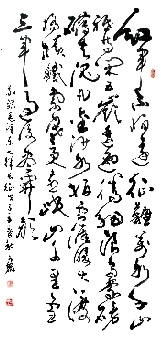 紅軍不怕遠征難萬水千山
只等閒五嶺逶迤騰細浪烏蒙磅
礴走泥丸金沙水拍雲崖暖大渡
橋橫鐵索寒更喜岷山千里雪
三軍過後盡開顏